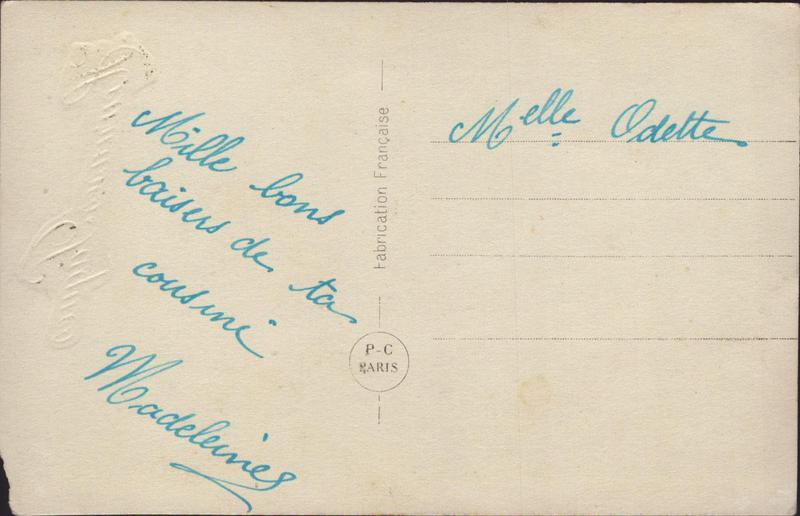 Mille bons
baisers de ta
cousine
Madeleine
Melle Odette
Fabrication Française
P-C
PARIS